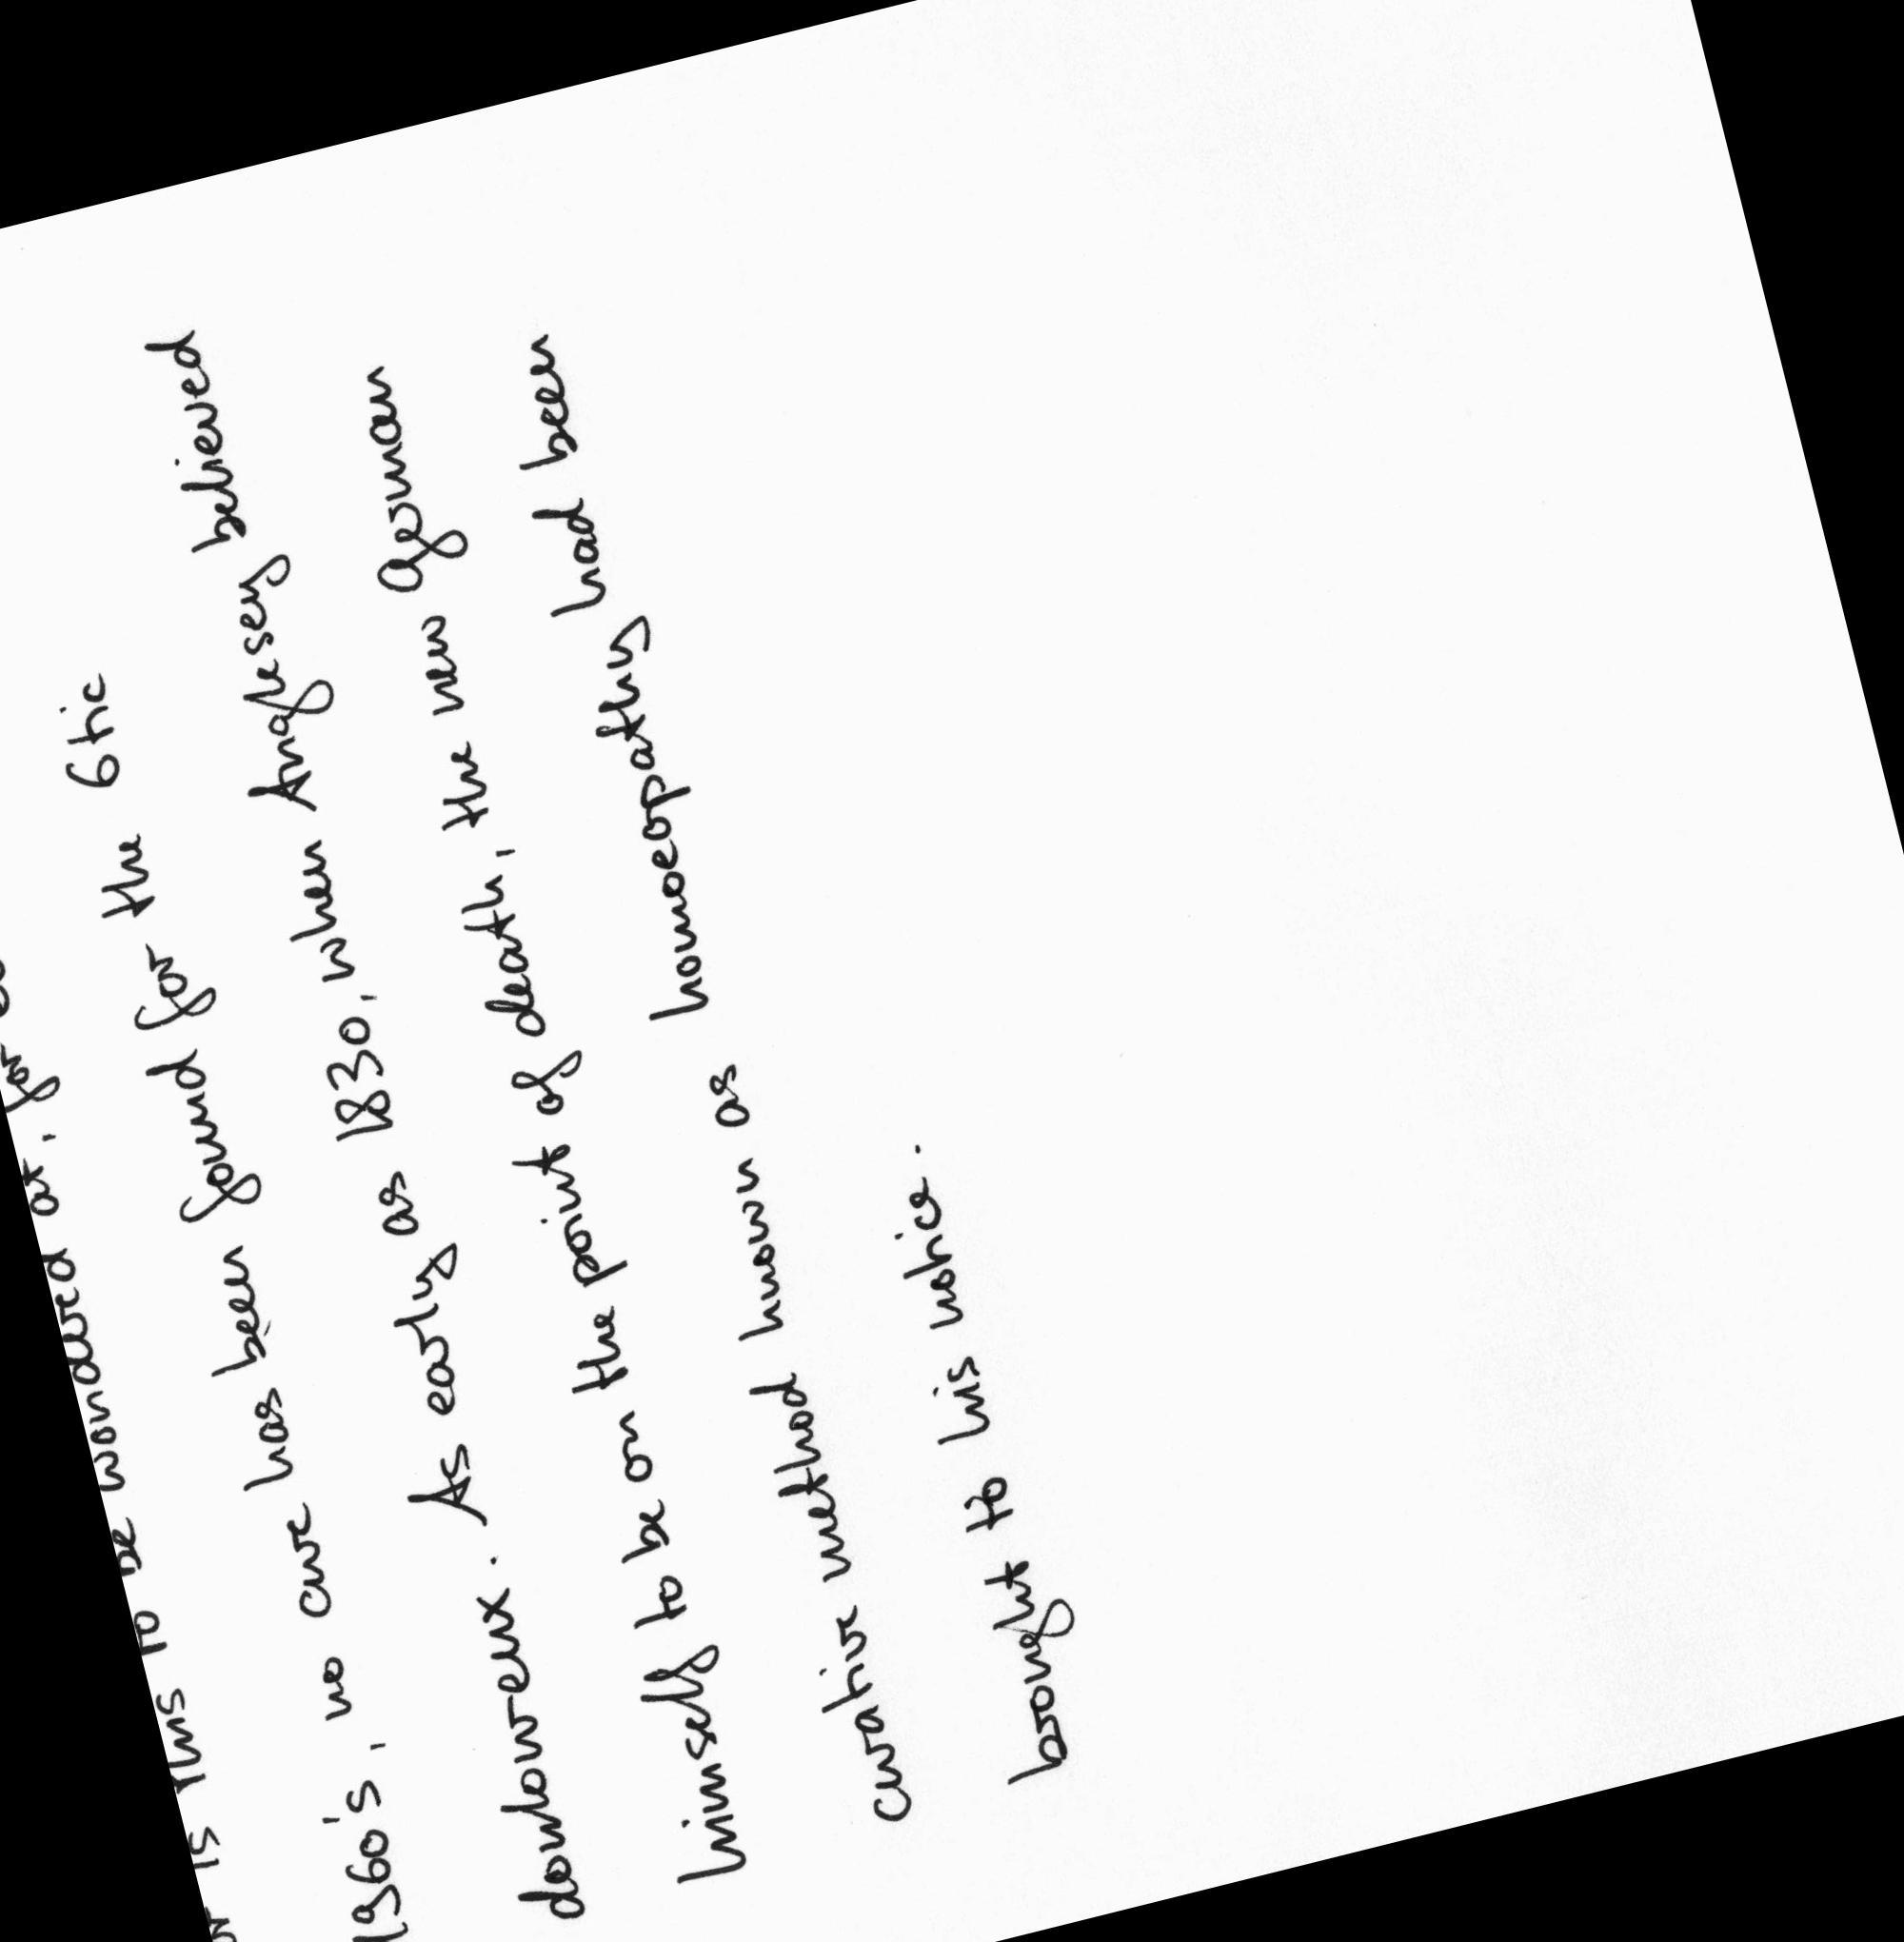 is this to be wondered at, for
1960's, no cure has been found for the 6tic
douloureux. As early as 1830, when Anglesey believed
himself to be on the point of death, the new German
curative method known as homoeopathy had been
brought to his notice.